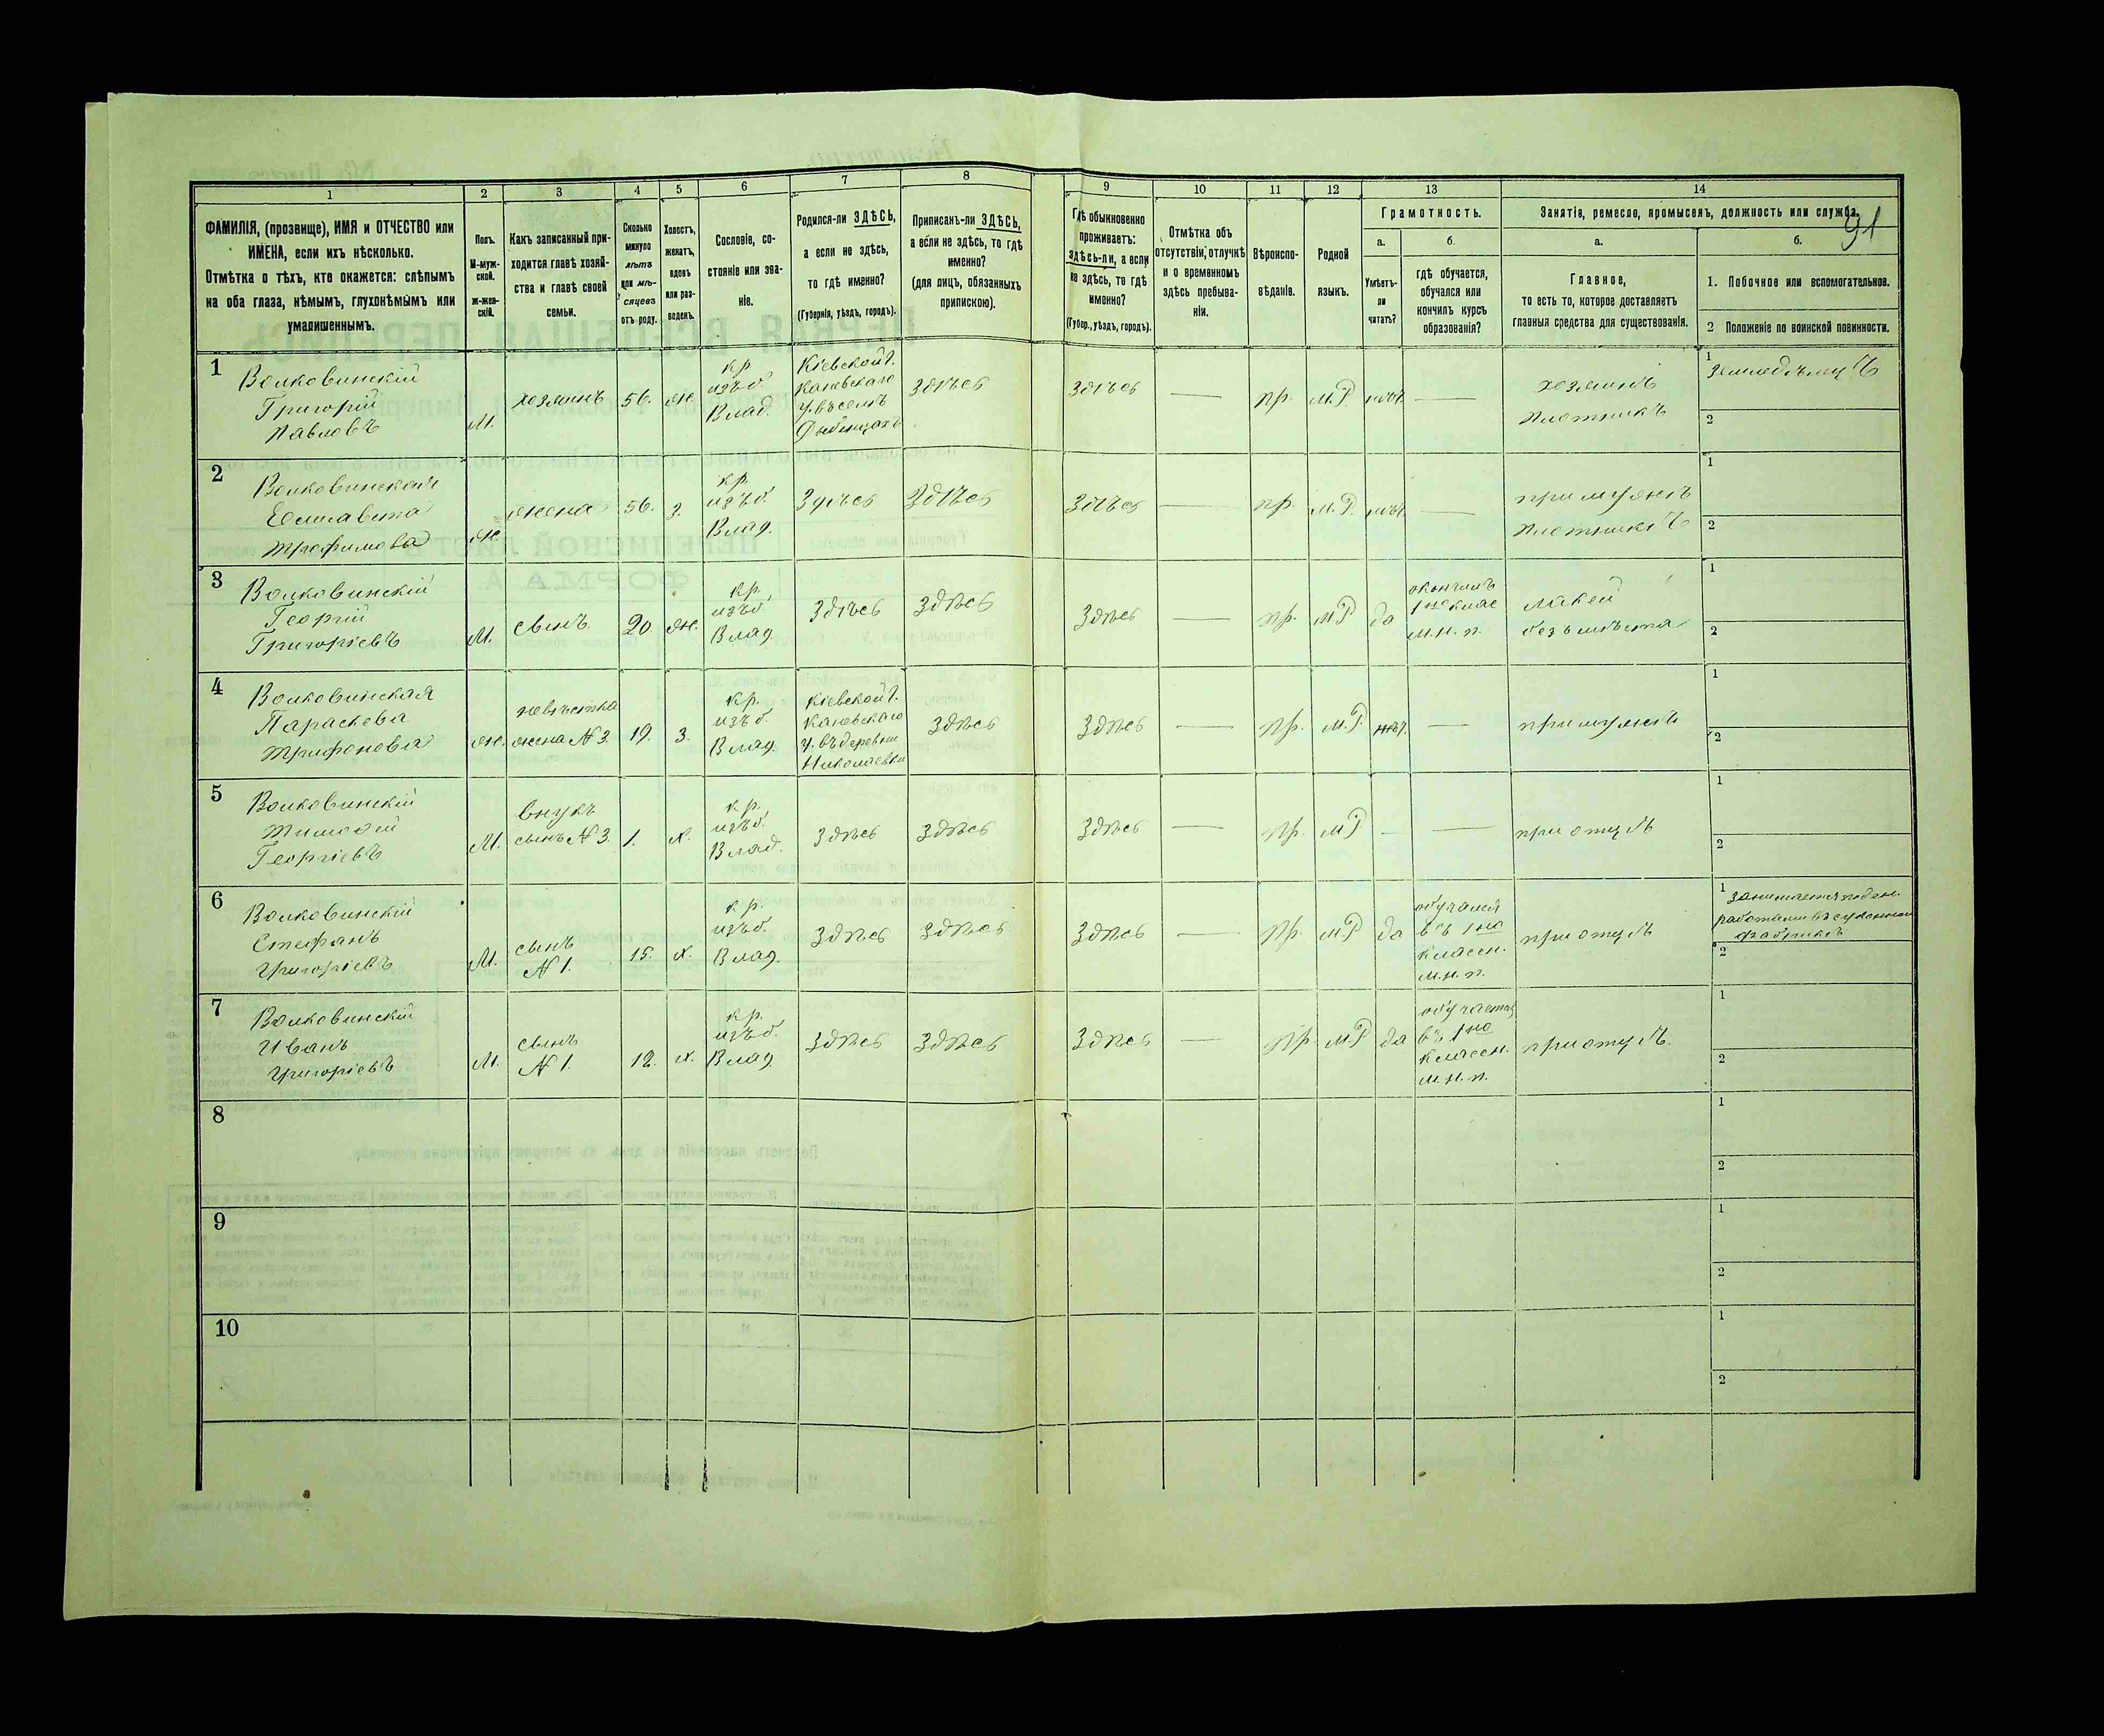 91
1 2 3 4 5 6 7 8 9 10 11 12 13 14
ФАМИЛІЯ, (прозвище), ИМЯ и ОТЧЕСТВО или
ИМЕНА, если ихъ нѣсколько.
Отмѣтка о тѣхъ, кто окажется: слѣпымъ
на оба глаза, нѣмымъ, глухонѣмымъ или
умалишеннымъ.
Полъ.
М-муж-
ской.
ж-жен-
скій.
Какъ записанный при-
ходится главѣ хозяй-
ства и главѣ своей
семьи.
Сколько
минуло
лѣтъ
или мѣ-
сяцевъ
отъ роду.
Холостъ,
женатъ,
вдовъ
или раз-
веденъ.
Сословіе, со-
стояніе или зва-
ніе.
Родился-ли ЗДѢСЬ,
а если не здѣсь,
то гдѣ именно?
(Губернія, уѣздъ, городъ).
Приписанъ-ли ЗДѢСЬ,
а если не здѣсь, то гдѣ
именно?
(для лицъ, обязанныхъ
припискою).
Гдѣ обыкновенно
проживаетъ:
здѣсь-ли, а если
не здѣсь, то гдѣ
именно?
(Губер., уѣздъ, городъ).
Отмѣтка объ
отсутствіи, отлучкѣ
и о временномъ
здѣсь пребыва-
ніи.
Вѣроиспо-
вѣданіе.
Родной
языкъ.
Грамотность.
а.
Умѣетъ-
ли
читать?
б.
гдѣ обучается,
обучался или
кончилъ курсъ
образованія?
Занятіе, ремесло, промыселъ, должность или служба.
а.
Главное,
то есть то, которое доставляетъ
главныя средства для существованія.
б.
1. Побочное или вспомогательное.
2 Положеніе по воинской повинности.
1
Волковинскій
Григорій
Павловъ
М.
хозяинъ
56.
ж.
кр
изъ б.
Влад.
Кіевской г.
Каневского
у. въ селѣ
здѣсь
здѣсь
—
пр.
м.Р.
нѣт.
—
хозяинъ
плотникъ
1
земледѣлецъ
2
2
Волковинская
Елисавета
Трофимова
ж.
жена
56.
з.
кр.
изъ б.
Влад.
Здѣсь
Здѣсь
Здѣсь
—
пр.
м.Р.
нѣт.
—
при мужѣ
плотникѣ
1
2
3
Волковинскій
Георгій
Григоріевъ
М.
сынъ.
20
ж.
кр.
изъ б.
Влад.
Здѣсь
Здѣсь
Здѣсь
—
пр.
м.Р
да
окончилъ
м.н.п.
лакей
безъ мѣста
1
2
4
Волковинская
Параскева
Трифонова
ж.
невѣстка
жена №3.
19.
з.
кр.
изъ б.
Влад.
Кіевской г.
Каневского
у. въ деревни
Николаевки
Здѣсь
Здѣсь
—
пр.
м.Р.
нѣт.
—
при мужѣ
1
2
5
Волковинскій
Тимофій
Георгіевъ
М.
внукъ
сынъ №3.
1.
х.
кр.
изъ б.
Влад.
Здѣсь
Здѣсь
Здѣсь
—
пр.
м.Р
—
—
при отцѣ
1
2
6
Волковинскій
Стефанъ
Григоріевъ
М.
сынъ
№1.
15.
х.
кр.
изъ б.
Влад.
Здѣсь
Здѣсь
Здѣсь
—
пр.
м.Р
да
обучался
въ 1но
классн.
м.н.п.
при отцѣ
1
работами въ суконной
фабрикѣ
2
7
Волковинскій
Иванъ
Григоріевъ
М.
сынъ
№1.
12.
х.
кр.
изъ б.
Влад.
Здѣсь
Здѣсь
Здѣсь
—
пр.
м.Р
да
обучается
въ 1но
классн.
м.н.п.
при отцѣ.
1
2
8
1
2
9
1
2
10
1
2